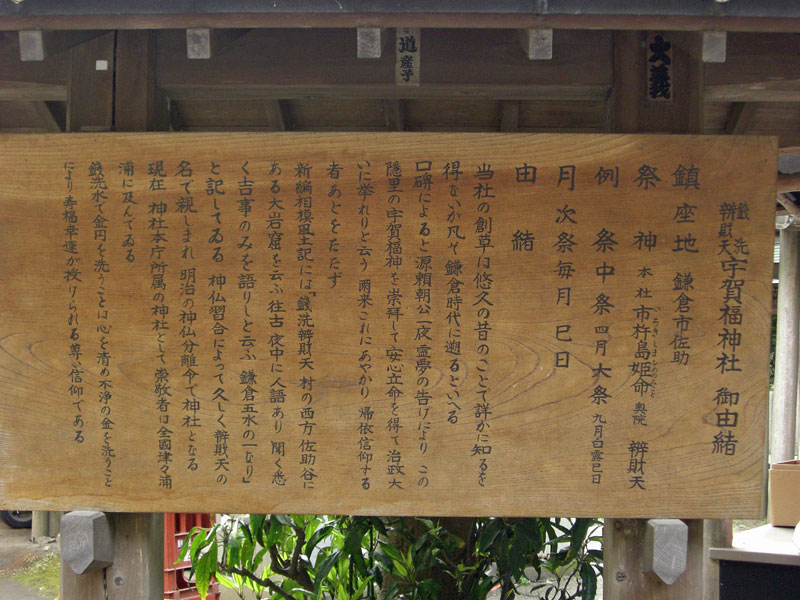 道産子
大義
銭洗辨財天 宇賀福神社 御由緒
鎮座地 鎌倉市佐助
祭神 本社 市杵島姫命 いちきしまひめのみこと 奥院 辨財天
例祭 中祭 四月 大祭 九月白露巳日
月次祭 毎月 巳日
由緒
当社の創草は悠久の昔のことで詳かに知るを
得ないが凡そ鎌倉時代に遡るといへる
口碑によると源頼朝公一夜霊夢の告げにより この
隠里の宇賀福神を崇拜して安心立命を得て治政大
いに挙れりと云う 爾来これにあやかり 帰依信仰する
者あとをたたず
新編相模風土記には「銭洗辨財天 村の西方佐助谷に
ある大岩窟を云ふ往古夜中に人語あり 聞く悉
く吉事のみを語りしと云ふ 鎌倉五水の一なり」
と記してゐる 神仏習合によって久しく辨財天の
名で親しまれ 明治の神仏分離令で神社となる
現在 神社本庁所属の神社として崇敬者は全國津々浦
浦に及んでゐる
銭洗水で金円を洗うことは心を清め不浄の金を洗うこと
により寿福幸運が授けられる尊い信仰である